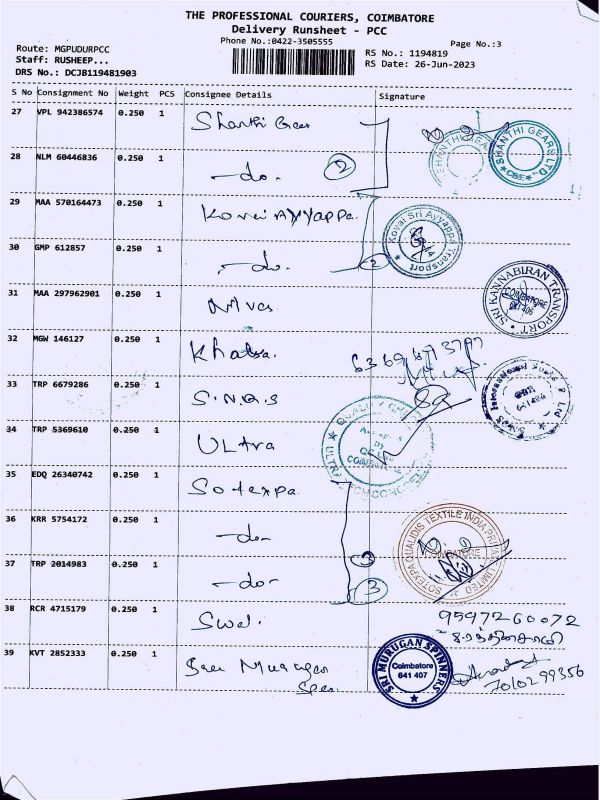 THE PROFESSIONAL COURIERS, COIMBATORE
Delivery Runsheet - PCC
Phone No.:0422-3505555
Page No.:3
Route: MGPUDURPCC
RS No.: 1194819
Staff: RUSHEEP...
RS Date: 26-Jun-2023
DRS No.: DCJB119481903
S No Consignment No Weight PCS Consignee Details Signature
27 VPL 942386574 0.250 1 Shanthi Gears SHANTHI GEARS LTD. CBE
28 NLM 60446836 0.250 1 -do- 2
29 MAA 570164473 0.250 1 Kovai Ayyappa. Kovai Sri Ayyappa Transport
30 GMP 612857 0.250 1 -do- 2
31 MAA 297962901 0.250 1 SRI KANNABIRAN TRANSPORT COIMBATORE
32 MGW 146127 0.250 1
33 TRP 6679286 0.250 1 S.N.Q.S
34 TRP 5369610 0.250 1 ULtra
35 EDQ 26340742 0.250 1 Sotexpa
36 KRR 5754172 0.250 1 -do- SOTEXPA QUALIDIS TEXTILE INDIA PRIVATE LIMITED COIMBATORE
37 TRP 2014983 0.250 1 -do- 3
38 RCR 4715179 0.250 1 9597260072
39 KVT 2852333 0.250 1 Sree Murugan SRI MURUGAN SPINNERS Coimbatore 641 407
7010299356